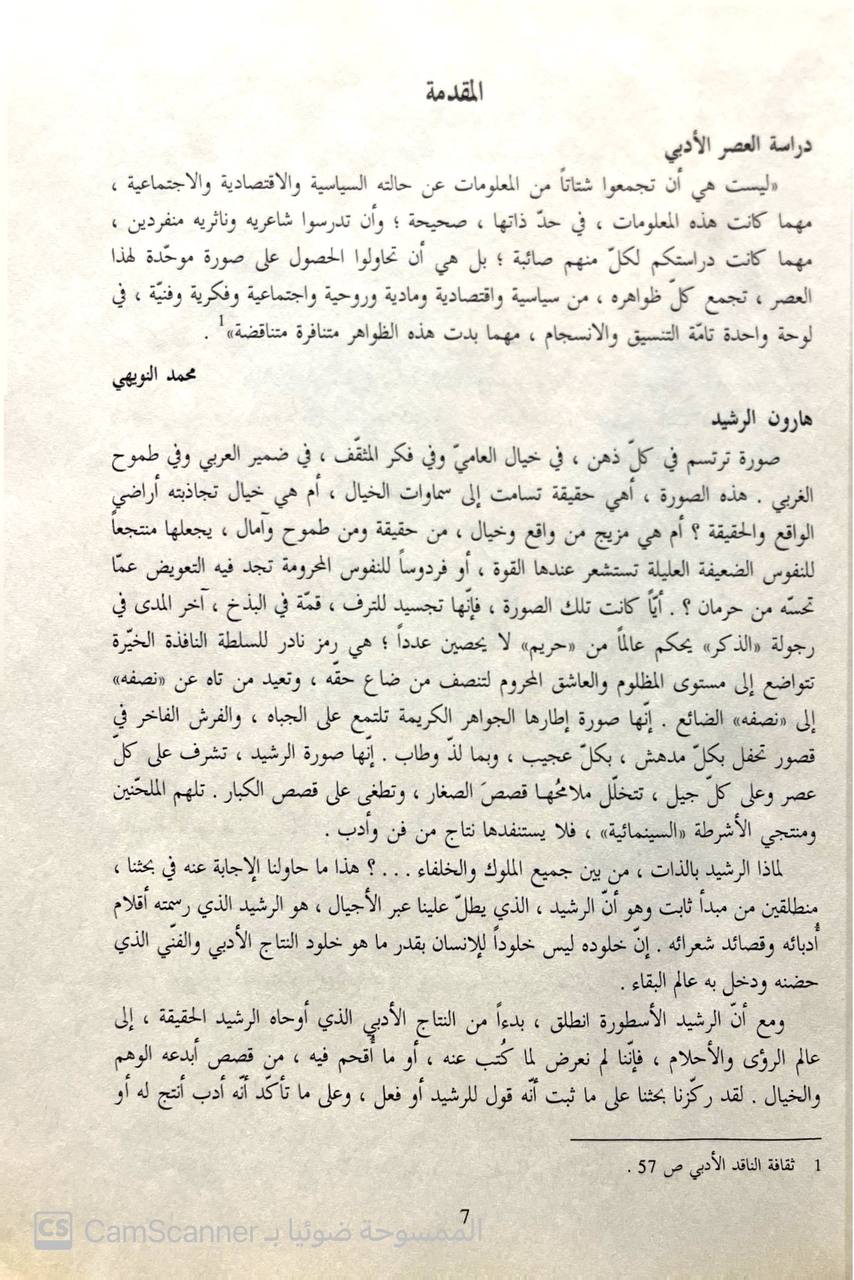 المقدمة
دراسة العصر الأدبي
«ليست هي أن تجمعوا شتاتاً من المعلومات عن حالته السياسية والاقتصادية والاجتماعية ،
مهما كانت هذه المعلومات ، في حدّ ذاتها ، صحيحة ؛ وأن تدرسوا شاعريه وناثريه منفردين ،
مهما كانت دراستكم لكلّ منهم صائبة ؛ بل هي أن تحاولوا الحصول على صورة موحّدة لهذا
العصر ، تجمع كلّ ظواهره ، من سياسية واقتصادية ومادية وروحية واجتماعية وفكرية وفنيّة ، في
لوحة واحدة تامّة التنسيق والانسجام ، مهما بدت هذه الظواهر متنافرة متناقضة»1 .
محمد النويهي
هارون الرشيد
صورة ترتسم في كلّ ذهن ، في خيال العاميّ وفي فكر المثقّف ، في ضمير العربي وفي طموح
الغربي . هذه الصورة ، أهي حقيقة تسامت إلى سماوات الخيال ، أم هي خيال تجاذبته أراضي
الواقع والحقيقة ؟ أم هي مزيج من واقع وخيال ، من حقيقة ومن طموح وآمال ، يجعلها منتجعاً
للنفوس الضعيفة العليلة تستشعر عندها القوة ، أو فردوساً للنفوس المحرومة تجد فيه التعويض عمّا
تحسّه من حرمان ؟ . أيّاً كانت تلك الصورة ، فإنّها تجسيد للترف ، قمّة في البذخ ، آخر المدى في
رجولة «الذكر» يحكم عالماً من «حريم» لا يحصين عدداً ؛ هي رمز نادر للسلطة النافذة الخيّرة
تتواضع إلى مستوى المظلوم والعاشق المحروم لتنصف من ضاع حقّه ، وتعيد من تاه عن «نصفه»
إلى «نصفه» الضائع . إنّها صورة إطارها الجواهر الكريمة تلتمع على الجباه ، والفرش الفاخر في
قصور تحفل بكلّ مدهش ، بكلّ عجيب ، وبما لذّ وطاب . إنّها صورة الرشيد ، تشرف على كلّ
عصر وعلى كلّ جيل ، تتخلّل ملامحُها قصصَ الصغار ، وتطغى على قصص الكبار . تلهم الملحّنين
ومنتجي الأشرطة «السينمائية» ، فلا يستنفدها نتاج من فن وأدب .
لماذا الرشيد بالذات ، من بين جميع الملوك والخلفاء . . . ؟ هذا ما حاولنا الإجابة عنه في بحثنا ،
منطلقين من مبدأ ثابت وهو أنّ الرشيد ، الذي يطلّ علينا عبر الأجيال ، هو الرشيد الذي رسمته أقلام
أُدبائه وقصائد شعرائه . إنّ خلوده ليس خلوداً للإنسان بقدر ما هو خلود النتاج الأدبي والفنّي الذي
حضنه ودخل به عالم البقاء .
ومع أنّ الرشيد الأسطورة انطلق ، بدءاً من النتاج الأدبي الذي أوحاه الرشيد الحقيقة ، إلى
عالم الرؤى والأحلام ، فإنّنا لم نعرض لما كُتب عنه ، أو ما أُقحم فيه ، من قصص أبدعه الوهم
والخيال . لقد ركّزنا بحثنا على ما ثبت أنّه قول للرشيد أو فعل ، وعلى ما تأكّد أنّه أدب أنتج له أو
1 ثقافة الناقد الأدبي ص 57 .
7
CS الممسوحة ضوئيا بـ CamScanner